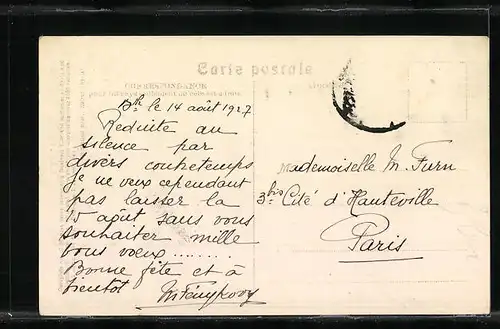 Carte postale
CORRESPONDANCE
le 14 août 1927
Reduite au
silence par
divers contretemps
je ne veux cependant
pas laisser la
15 août sans vous
souhaiter mille
bons voeux........
Bonne fête et à
bientot
Mademoiselle M. Furn
3 bis Cité d'Hauteville
Paris